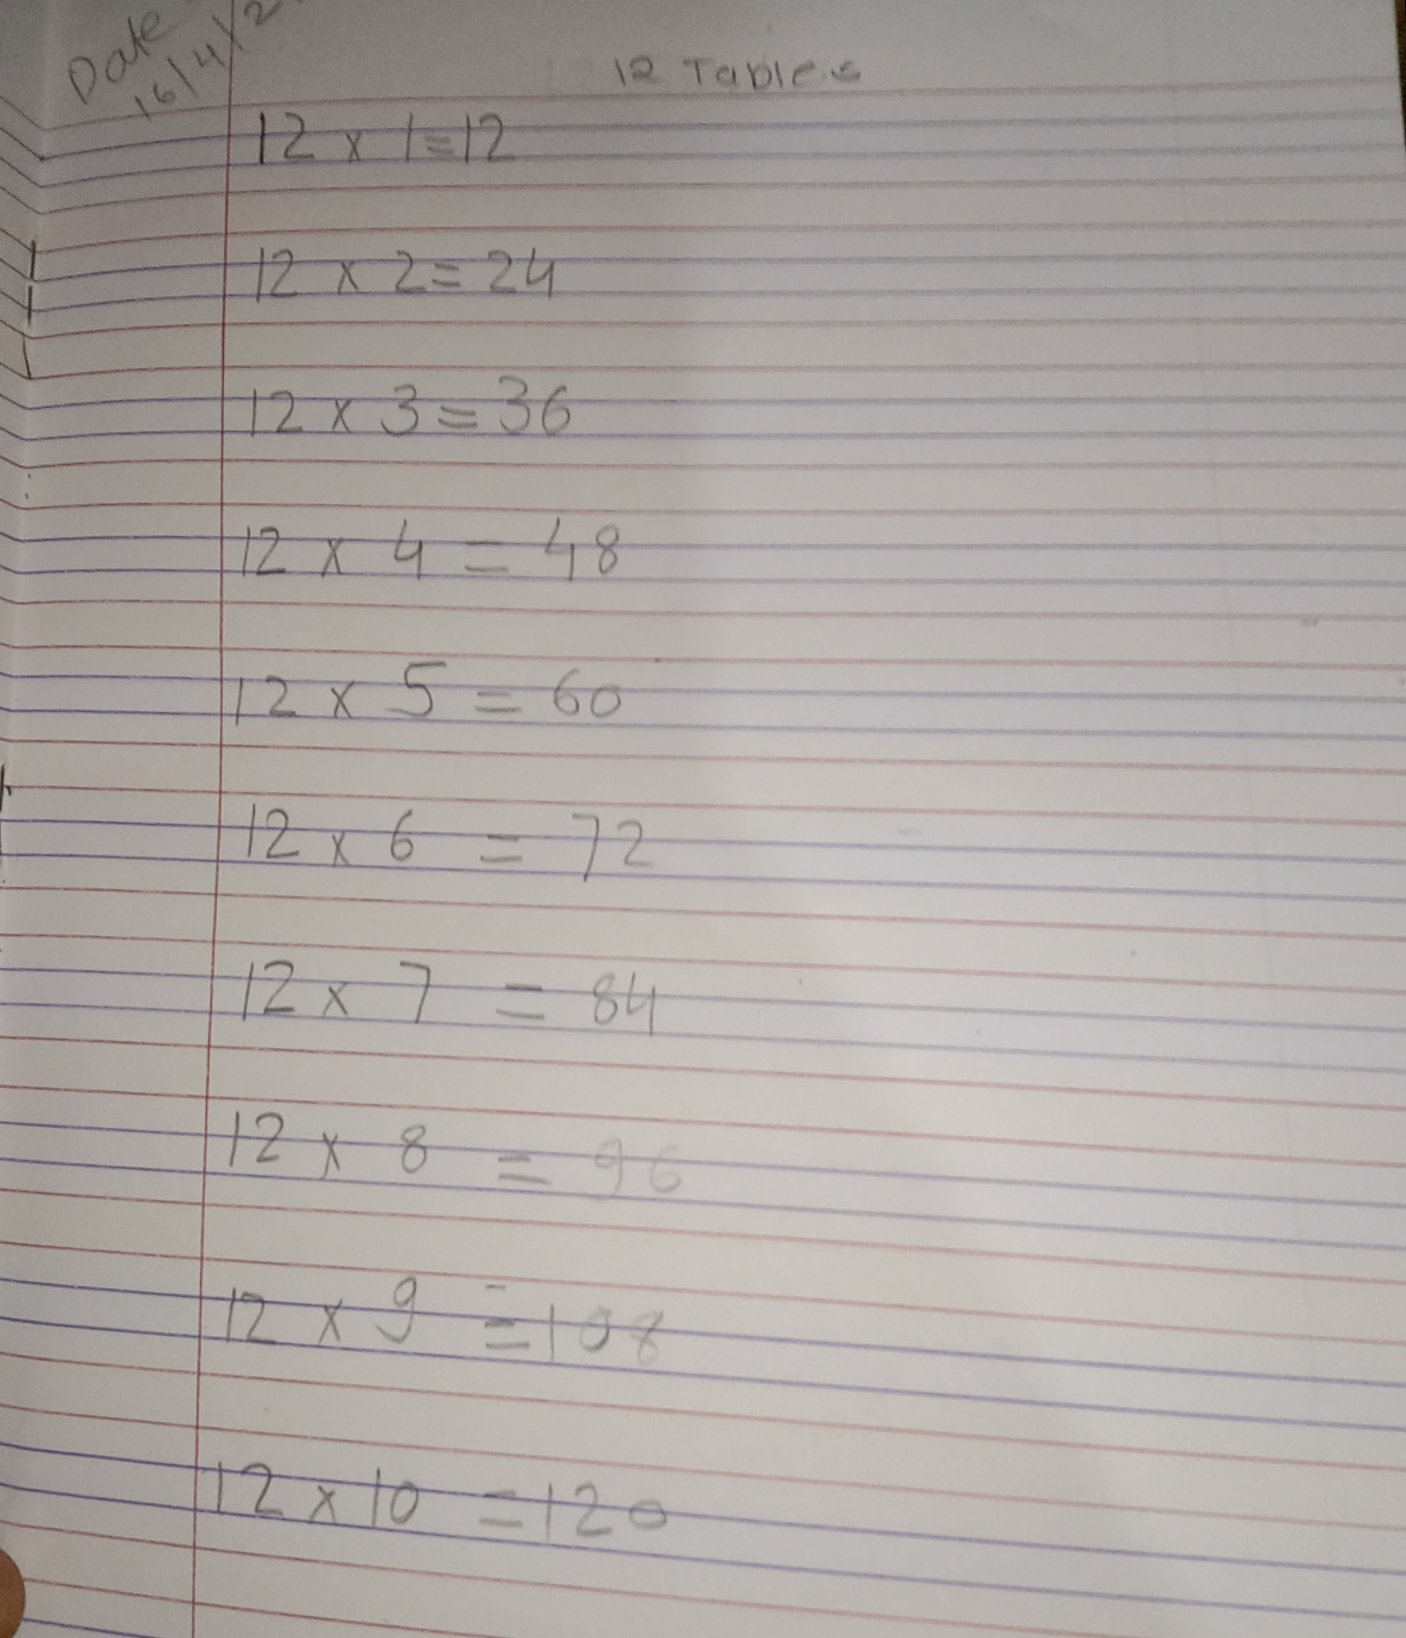 Date
16/4/2
12 Tables
12 x 1 = 12
12 x 2 = 24
12 x 3 = 36
12 x 4 = 48
12 x 5 = 60
12 x 6 = 72
12 x 7 = 84
12 x 8 = 96
12 x 9 = 108
12 x 10 = 120